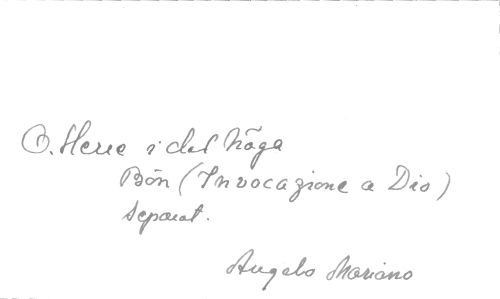 O. Herre i det höga
Bön (Invocazione a Dio)
Separat.
Angelo Mariano